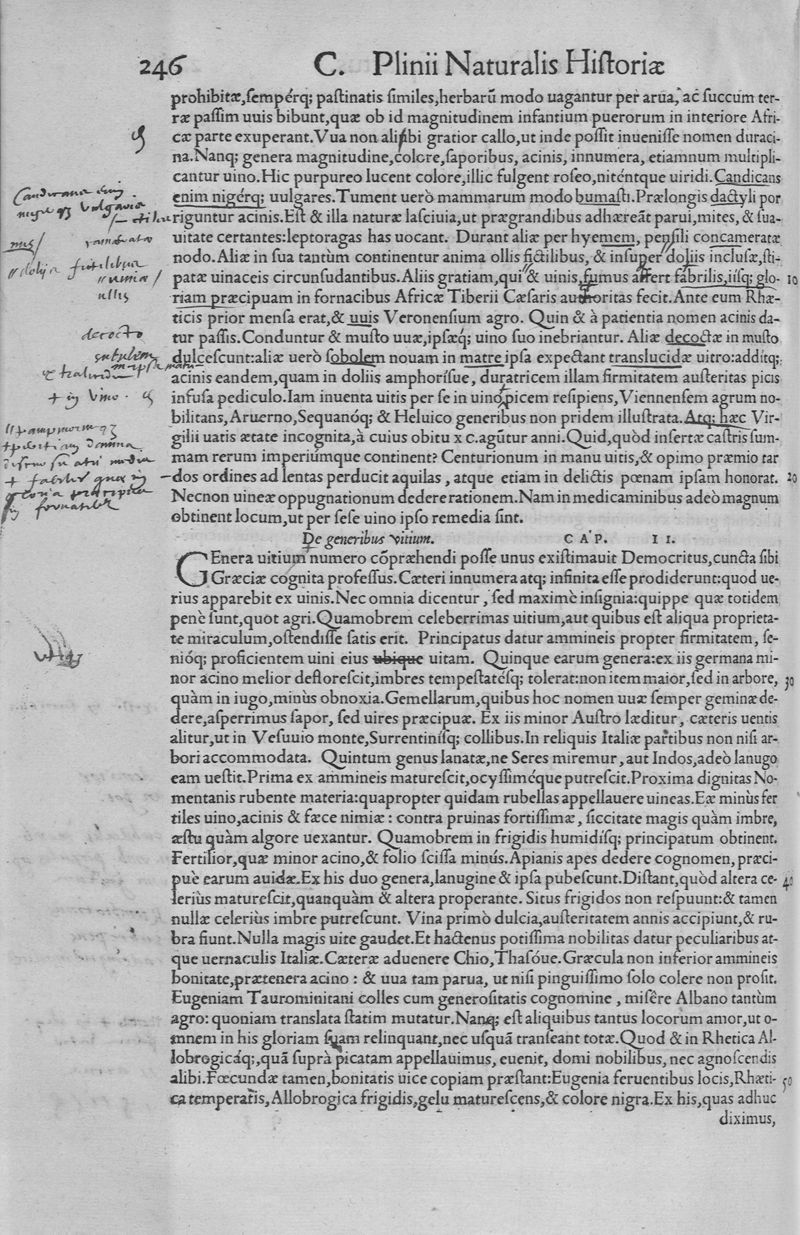 246 C. Plinii Naturalis Hiſtoriæ
prohibitæ,ſempérq; paſtinatis ſimiles,herbarũ modo uagantur per arua, ac ſuccum ter-
ræ paſſim uuis bibunt,quæ ob id magnitudinem infantium puerorum in interiore Afri-
cæ parte exuperant.Vua non alibi gratior callo,ut inde poſſit inueniſſe nomen duraci-
na.Nanq; genera magnitudine,colore,ſaporibus, acinis, innumera, etiamnum multipli-
cantur uino.Hic purpureo lucent colore,illic fulgent roſeo,niténtque uiridi.Candicans
enim nigérq; uulgares.Tument uerò mammarum modo bumaſti.Prælongis dactyli por
riguntur acinis.Eſt & illa naturæ laſciuia,ut prægrandibus adhæreãt parui,mites, & ſua-
uitate certantes:leptoragas has uocant. Durant aliæ per hyemem, penſili concameratæ
nodo.Aliæ in ſua tantùm continentur anima ollis fictilibus, & inſuper doliis incluſæ,ſti-
patæ uinaceis circunſudantibus.Aliis gratiam,qui & uinis,fumus affert fabrilis,iiſq; glo- 10
riam præcipuam in fornacibus Africæ Tiberii Cæſaris authoritas fecit.Ante eum Rhæ-
ticis prior menſa erat,& uuis Veronenſium agro. Quin & à patientia nomen acinis da-
tur paſſis.Conduntur & muſto uuæ,ipſæq; uino ſuo inebriantur. Aliæ decoctæ in muſto
dulceſcunt:aliæ uerò ſobolem nouam in matre ipſa expectant translucidæ uitro:additq;
acinis eandem,quam in doliis amphoriſue, duratricem illam firmitatem auſteritas picis
infuſa pediculo.Iam inuenta uitis per ſe in uino picem reſipiens,Viennenſem agrum no-
bilitans,Aruerno,Sequanóq; & Heluico generibus non pridem illuſtrata.Atq; hæc Vir-
gilii uatis ætate incognita,à cuius obitu x c.agũtur anni.Quid,quòd inſertæ caſtris ſum-
mam rerum imperiúmque continent? Centurionum in manu uitis,& opimo præmio tar
dos ordines ad lentas perducit aquilas , atque etiam in delictis pœnam ipſam honorat. 20
Necnon uineæ oppugnationum dedere rationem.Nam in medicaminibus adeò magnum
obtinent locum,ut per ſeſe uino ipſo remedia ſint.
De generibus vitium. C A P. I I.
GEnera uitium numero cõpræhendi poſſe unus exiſtimauit Democritus,cuncta ſibi
Græciæ cognita profeſſus.Cæteri innumera atq; infinita eſſe prodiderunt:quod ue-
rius apparebit ex uinis.Nec omnia dicentur , ſed maximè inſignia:quippe quæ totidem
penè ſunt,quot agri.Quamobrem celeberrimas uitium,aut quibus eſt aliqua proprieta-
te miraculum,oſtendiſſe ſatis erit. Principatus datur ammineis propter firmitatem, ſe-
nióq; proficientem uini eius ubique uitam. Quinque earum genera:ex iis germana mi-
nor acino melior defloreſcit,imbres tempeſtatéſq; tolerat:non item maior,ſed in arbore, 30
quàm in iugo,minùs obnoxia.Gemellarum,quibus hoc nomen uuæ ſemper geminæ de-
dere,aſperrimus ſapor, ſed uires præcipuæ. Ex iis minor Auſtro læditur, cæteris uentis
alitur,ut in Veſuuio monte,Surrentiniſq; collibus.In reliquis Italiæ partibus non niſi ar-
bori accommodata. Quintum genus lanatæ,ne Seres miremur,aut Indos,adeò lanugo
eam ueſtit.Prima ex ammineis matureſcit,ocyſſiméque putreſcit.Proxima dignitas No-
mentanis rubente materia:quapropter quidam rubellas appellauere uineas.Eæ minùs fer
tiles uino,acinis & fæce nimiæ : contra pruinas fortiſſimæ, ſiccitate magis quàm imbre,
æſtu quàm algore uexantur. Quamobrem in frigidis humidiſq; principatum obtinent.
Fertilior,quæ minor acino,& folio ſciſſa minùs.Apianis apes dedere cognomen,præci-
puè earum auidæ.Ex his duo genera,lanugine & ipſa pubeſcunt.Diſtant,quòd altera ce- 40
leriùs matureſcit,quanquàm & altera properante. Situs frigidos non reſpuunt:& tamen
nullæ celeriùs imbre putreſcunt. Vina primò dulcia,auſteritatem annis accipiunt,& ru-
bra fiunt.Nulla magis uite gaudet.Et hactenus potiſſima nobilitas datur peculiaribus at-
que uernaculis Italiæ.Cæteræ aduenere Chio,Thaſóue.Græcula non inferior ammineis
bonitate,prætenera acino : & uua tam parua, ut niſi pinguiſſimo ſolo colere non proſit.
Eugeniam Taurominitani colles cum generoſitatis cognomine , miſêre Albano tantùm
agro: quoniam translata ſtatim mutatur.Nanq; eſt aliquibus tantus locorum amor,ut o-
mnem in his gloriam ſuam relinquant,nec uſquã tranſeant totæ.Quod & in Rhetica Al-
lobrogicáq;,quã ſuprà picatam appellauimus, euenit, domi nobilibus, nec agnoſcendis
alibi.Fœcundæ tamen,bonitatis uice copiam præſtant:Eugenia feruentibus locis,Rhæti- 50
ca temperatis,Allobrogica frigidis,gelu matureſcens,& colore nigra.Ex his,quas adhuc
diximus,